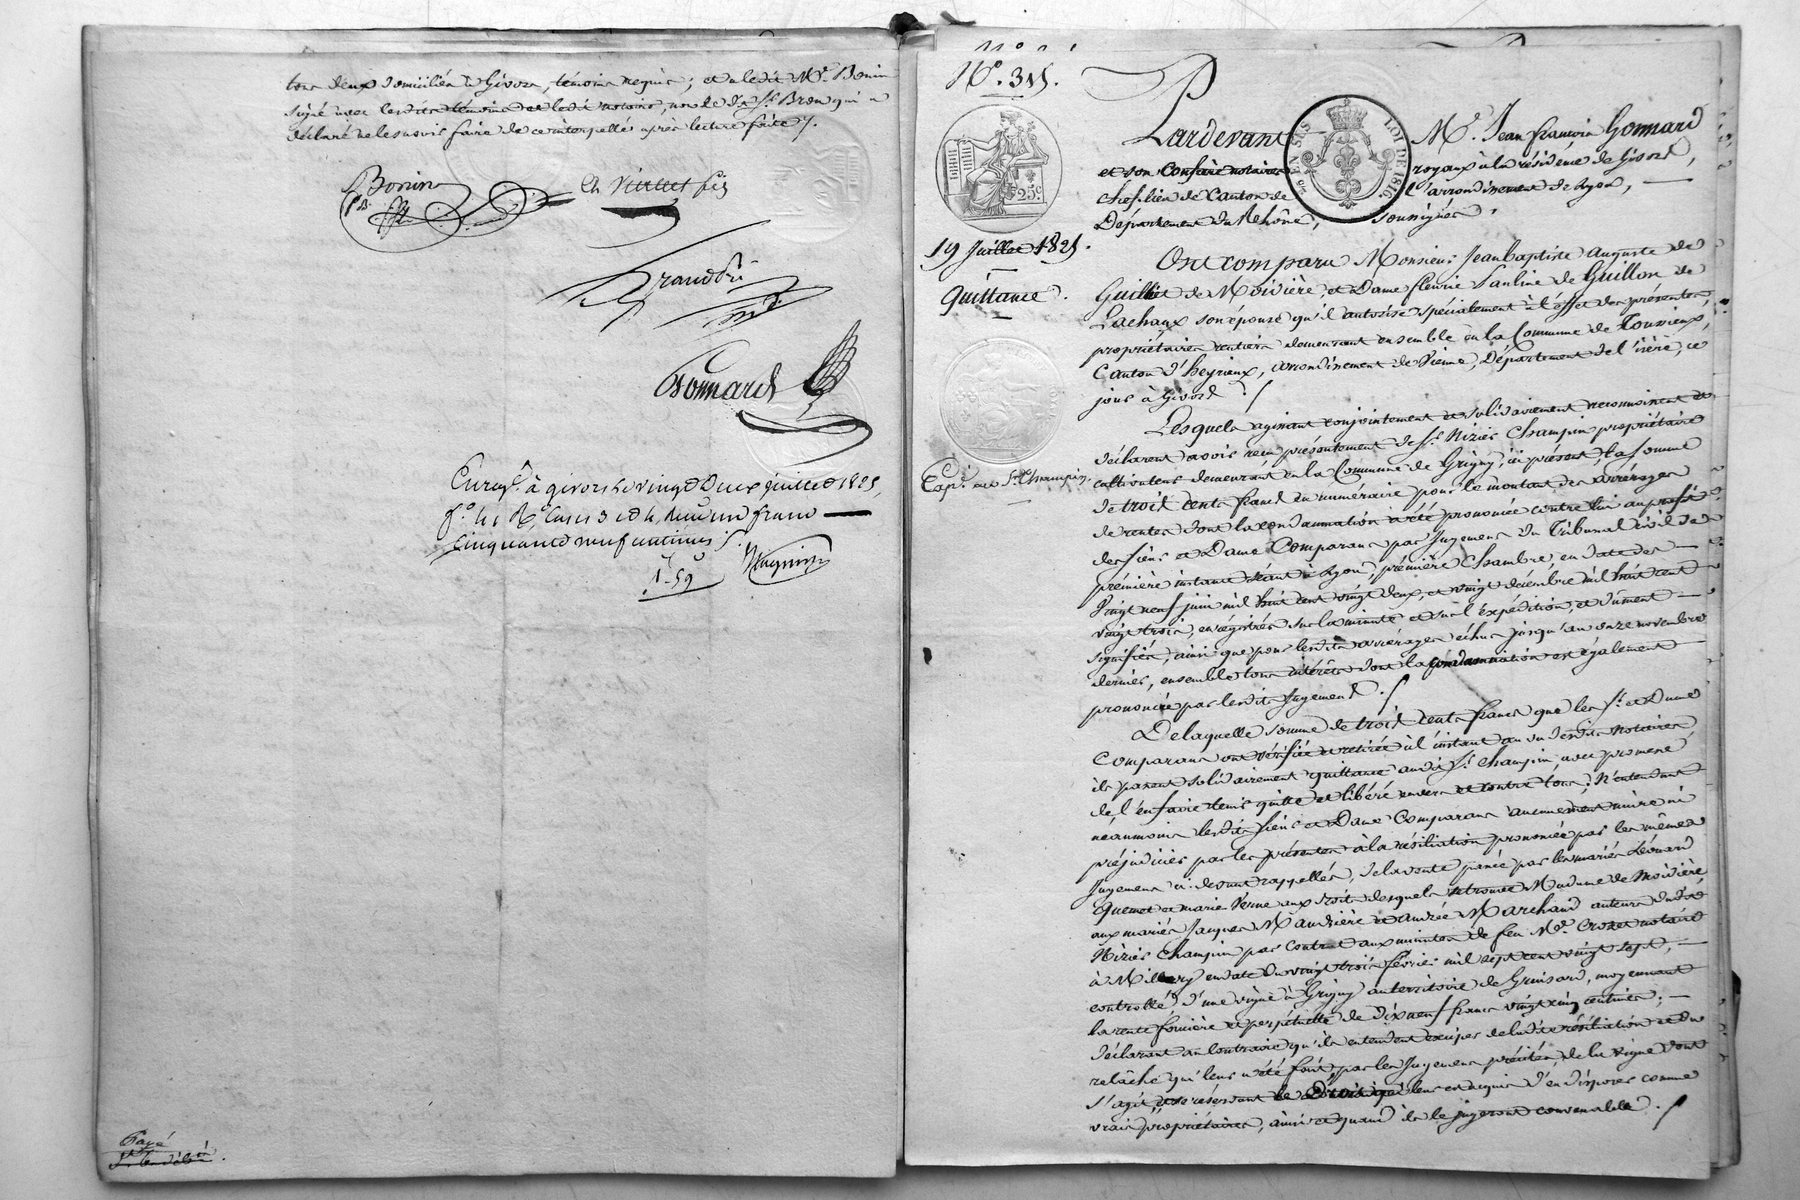 tous deux domiciliés à Givors, témoins requis; et a ledit Mr. Bonin
signé avec lesdits témoins et ledit notaire, non le dit Sr. Bron qui a
déclaré ne le savoir faire de ce interpellé après lecture faite ./.
Bonin
fils
Grand
Gonnard
Enregt. à givors le vingt Deux juillet 1825,
f.° 41 R.° Cases 3 et 4, Reçu un franc
cinquante neuf centimes ./.
1-59
Payé
N.° 315.
Pardevant Me. Jean françois Gonnard
et son Confrère notaires royaux à la résidence de Givors,
Chef-lieu de Canton de l'arrondissement de Lyon,
Département du Rhône, soussignés.
EN SUS
LOI DE 1816
25c
19 Juillet 1825.
Quittance.
Ont comparu Monsieur Jean baptiste auguste de
Guilliet de Moivière, et Dame fleurie Pauline de Guillon de
Lachaux son épouse qu'il autorise spécialement à l'effet des présentes
propriétaires rentiers demeurant ensemble en la Commune de Toussieux,
Canton d'heyrieux, arrondissement de Vienne, Département de l'isère, ce
jour à Givors ./
Expon. au Sr. Champin.
Lesquels agissant conjointement et solidairement reconnoissent et
déclarent avoir reçu présentement de Sr. Nizier Champin propriétaire
cultivateur demeurant en la Commune de Grigny, ici présent, la somme
de trois cents francs en numéraire pour le montant des arrérages
de rentes dont la condamnation a été prononcée contre lui au profit
des sieur et Dame Comparans par Jugemens du Tribunal civil de
première instance séant à Lyon, première Chambre, en date des
Vingt neuf juin mil huit cent vingt deux, et vingt décembre mil huit cent
vingt trois, enregistrés sur la minute et sur l'expédition, et dûment
signifiés, ainsi que pour lesdits arrérages échus jusqu'au onze novembre
dernier, ensemble tous intérêts dont la condamnation est également
prononcée par lesdits Jugemens ./
De laquelle somme de trois cents francs que les Sr. et Dame
Comparans ont vérifiée et retirée à l'instant au vu desdits notaires
ils passent solidairement quittance audit Sr. Champin, avec promesse
de l'en faire tenir quitte et libéré envers et contre tous. N'entendent
néanmoins lesdits sieur et Dame Comparans aucunement nuire ni
préjudicier par les présentes à la résiliation prononcée par les mêmes
Jugemens ci-devant rappellés, de la vente passée par les mariés Léonard
Quemet et marie Verne aux droits desquels se trouve Madame de Moivière
aux mariés Jacques Mandrière et andrée Marchand auteurs dudit
Nizier Champin par contrat aux minutes de feu Me. Crozet notaire
à Millery en date du vingt trois février mil sept cent vingt sept,
controllé, d'une vigne à Grigny au territoire de Grinsard, moyennant
la rente foncière et perpétuelle de dix neuf francs vingt cinq centimes;
déclarant au contraire qu'ils entendent exciper de ladite résiliation et du
relâche qui leur a été fait par les Jugemens précités de la vigne dont
s'agit, et se réservant le Droit qui leur est acquis d'en disposer comme
vrais propriétaires, ainsi et quand ils le jugeront convenable ./